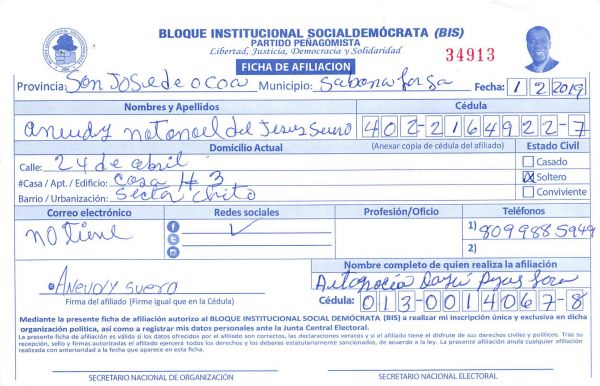 BLOQUE INSTITUCIONAL SOCIALDEMÓCRATA (BIS)
PARTIDO PEÑAGOMISTA
Libertad, Justicia, Democracia y Solidaridad
34913
FICHA DE AFILIACION
Provincia: San Jose de ocoa Municipio: Sabana larga Fecha: 1 2 2019
Nombres y Apellidos Cédula
aneudy natanael del Jesus Suero 402-2164922-7
Domicilio Actual (Anexar copia de cédula del afiliado) Estado Civil
Calle: 24 de abril Casado
#Casa / Apt. / Edificio: Casa # 3 Soltero
Barrio / Urbanización: Sector chito Conviviente
Correo electrónico Redes sociales Profesión/Oficio Teléfonos
no tiene 1) 8099885949
2)
Nombre completo de quien realiza la afiliación
Aneudy suero
Firma del afiliado (Firme igual que en la Cédula) Cédula: 013-0014067-8
Mediante la presente ficha de afiliación autorizo al BLOQUE INSTITUCIONAL SOCIAL DEMÓCRATA (BIS) a realizar mi inscripción única y exclusiva en dicha
organización política, así como a registrar mis datos personales ante la Junta Central Electoral.
La presente ficha de afiliación es válida si los datos ofrecidos por el afiliado son correctos, las declaraciones veraces y si el afiliado tiene el disfrute de sus derechos civiles y políticos. Tras su
recepción, sello y firmas autorizadas el afiliado ejercerá todos los derechos y los deberes estatutariamente sancionados, de acuerdo a la ley. La presente afiliación anula cualquier afiliación
realizada con anterioridad a la fecha que aparece en esta ficha.
SECRETARIO NACIONAL DE ORGANIZACIÓN SECRETARIO NACIONAL ELECTORAL